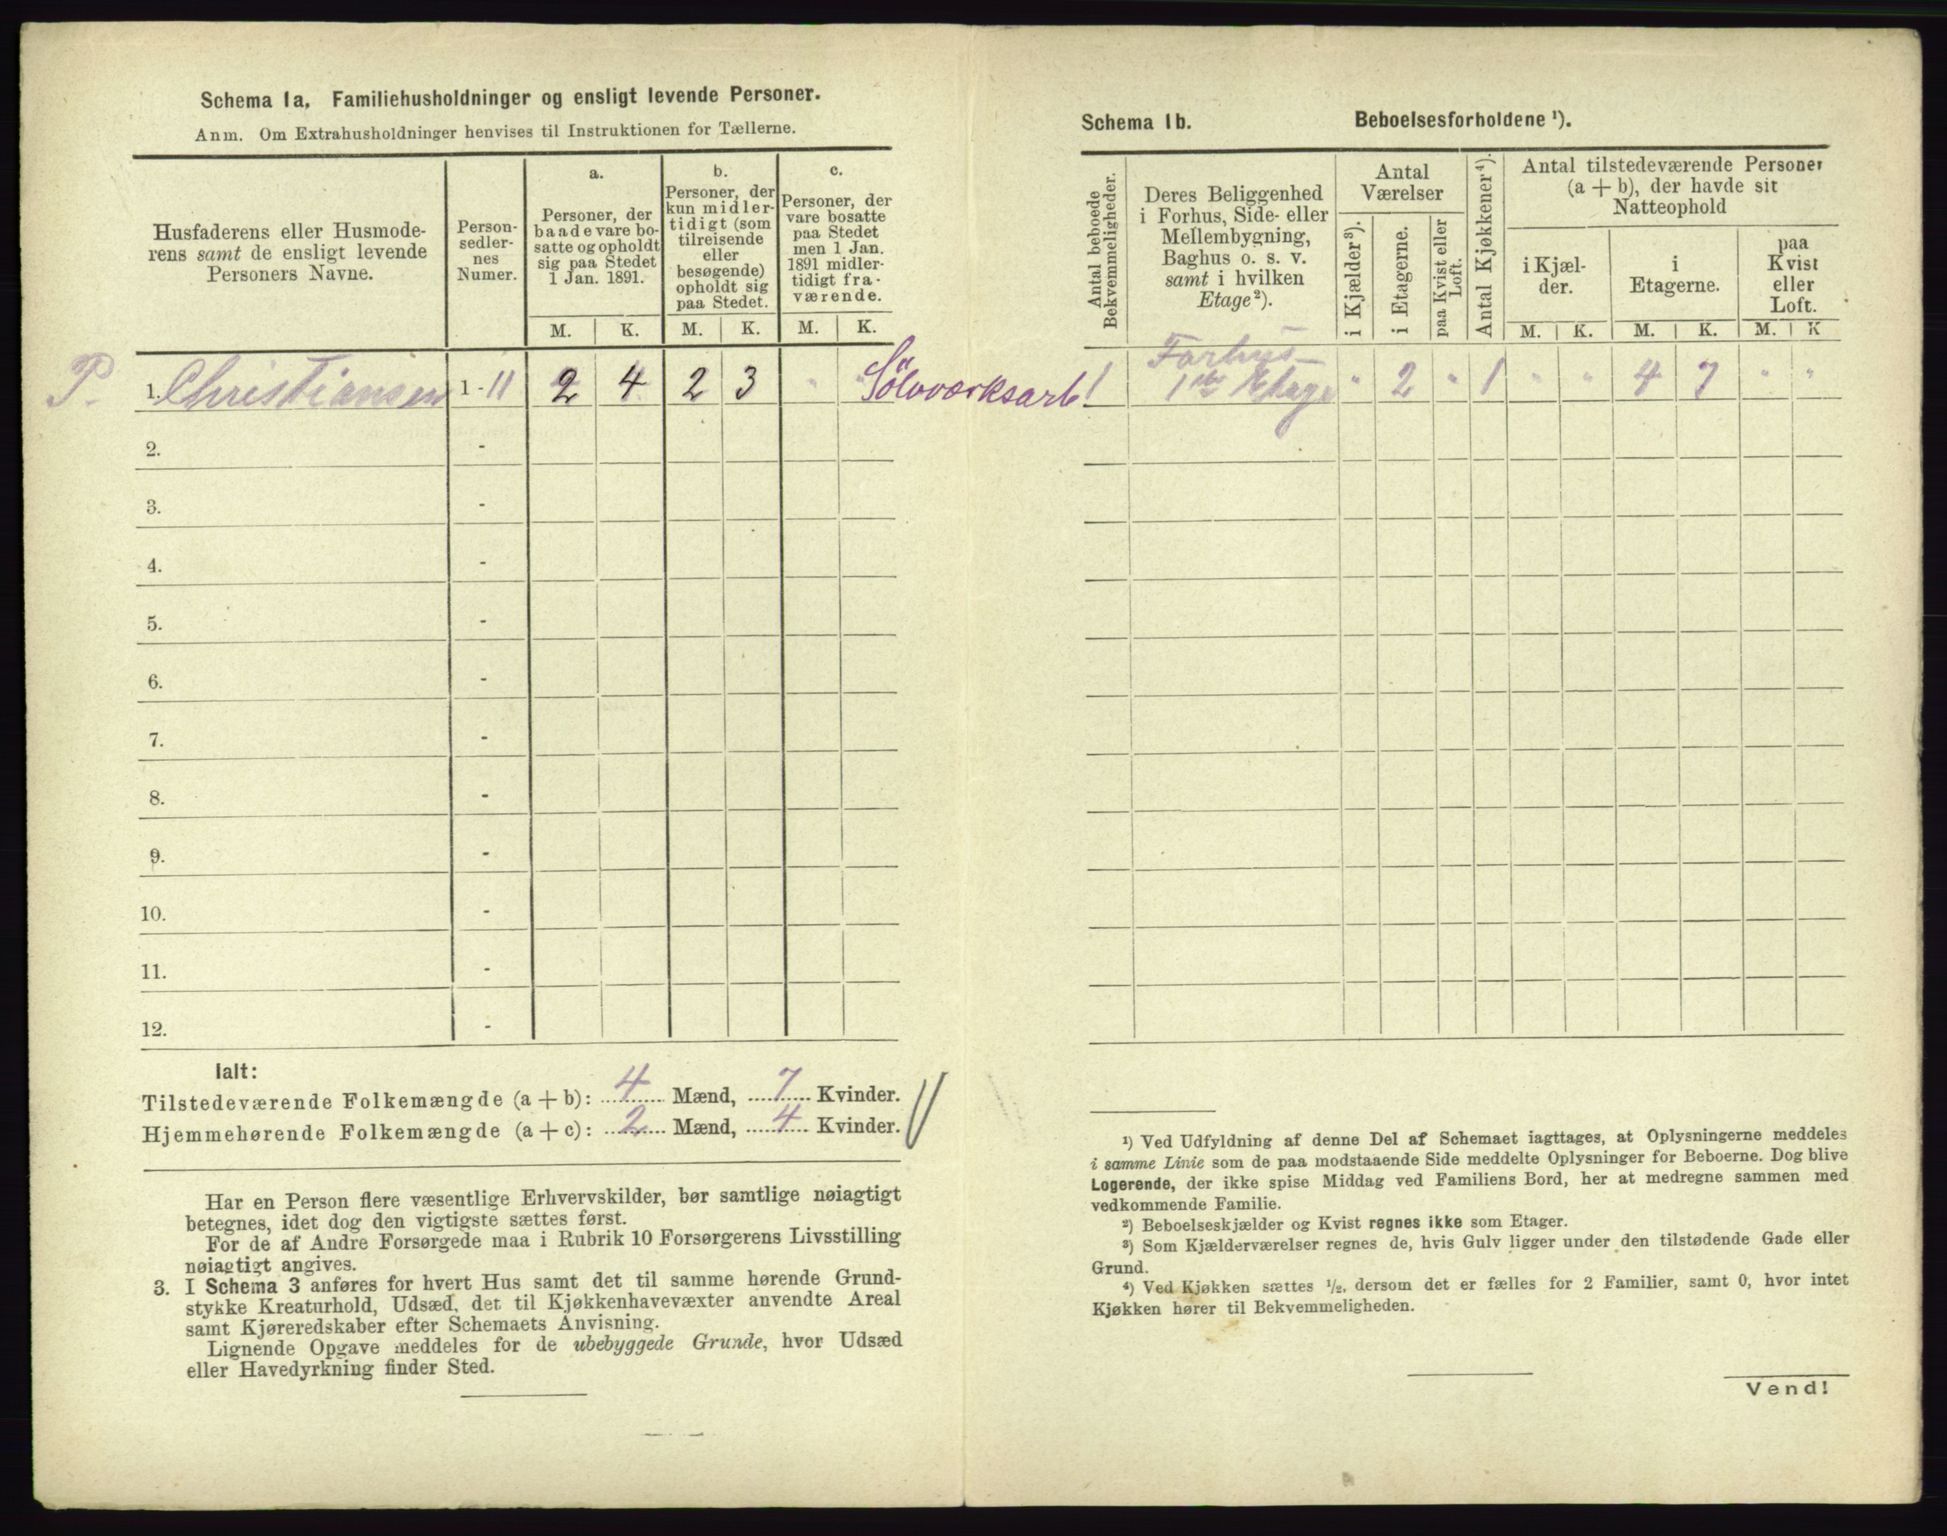 Schema 1a, Familiehusholdninger og ensligt levende Personer.
Anm. Om Extrahusholdninger henvises til Instruktionen for Tællerne.
Husfaderens eller Husmode-
rens samt de ensligt levende
Personers Navne.
Person-
sedler-
nes
Numer.
a.
Personer, der
baade vare bo-
satte og opholdt
sig paa Stedet
1 Jan. 1891.
b.
Personer, der
kun midler-
tidigt (som
tilreisende
eller
besøgende)
opholdt sig
paa Stedet.
c.
Personer, der
vare bosatte
paa Stedet
men 1 Jan.
1891 midler-
tidigt fra-
værende.
M. K. M. K. M. K.
P. 1. Christiansen 1-11 2 4 2 3 " " Sölvværksarb
2. -
3. -
4. -
5. -
6. -
7. -
8. -
9. -
10. -
11. -
12. -
Ialt:
Tilstedeværende Folkemængde (a + b): 4 Mænd, 7 Kvinder.
Hjemmehørende Folkemængde (a + c): 2 Mænd, 4 Kvinder.
Har en Person flere væsentlige Erhvervskilder, bør samtlige nøiagtigt
betegnes, idet dog den vigtigste sættes først.
For de af Andre Forsørgede maa i Rubrik 10 Forsørgerens Livsstilling
nøiagtigt angives.
3. I Schema 3 anføres for hvert Hus samt det til samme hørende Grund-
stykke Kreaturhold, Udsæd, det til Kjøkkenhavevæxter anvendte Areal
samt Kjøreredskaber efter Schemaets Anvisning.
Lignende Opgave meddeles for de ubebyggede Grunde, hvor Udsæd
eller Havedyrkning finder Sted.
Schema 1b. Beboelsesforholdene ¹).
Antal beboede
Bekvemmeligheder.
Deres Beliggenhed
i Forhus, Side- eller
Mellembygning,
Baghus o. s. v.
samt i hvilken
Etage²).
Antal
Værelser
i Kjælder³).
i Etagerne.
paa Kvist eller
Loft.
Antal Kjøkkener⁴).
Antal tilstedeværende Personer
(a + b), der havde sit
Natteophold
i Kjæl-
der.
i
Etagerne.
paa
Kvist
eller
Loft.
M. K. M. K. M. K
Forhus
1 1ste Etage " 2 " 1 " " 4 7 " "
¹) Ved Udfyldning af denne Del af Schemaet iagttages, at Oplysningerne meddeles
i samme Linie som de paa modstaaende Side meddelte Oplysninger for Beboerne. Dog blive
Logerende, der ikke spise Middag ved Familiens Bord, her at medregne sammen med
vedkommende Familie.
²) Beboelseskjælder og Kvist regnes ikke som Etager.
³) Som Kjælderværelser regnes de, hvis Gulv ligger under den tilstødende Gade eller
Grund.
⁴) Ved Kjøkken sættes ¹/₂, dersom det er fælles for 2 Familier, samt 0, hvor intet
Kjøkken hører til Bekvemmeligheden.
Vend!